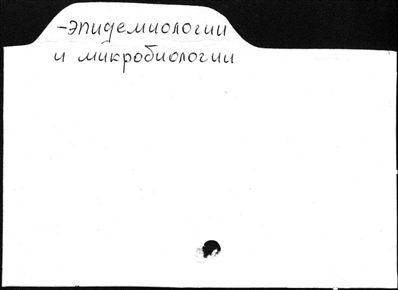 -эпидемиологии
и микробиологии